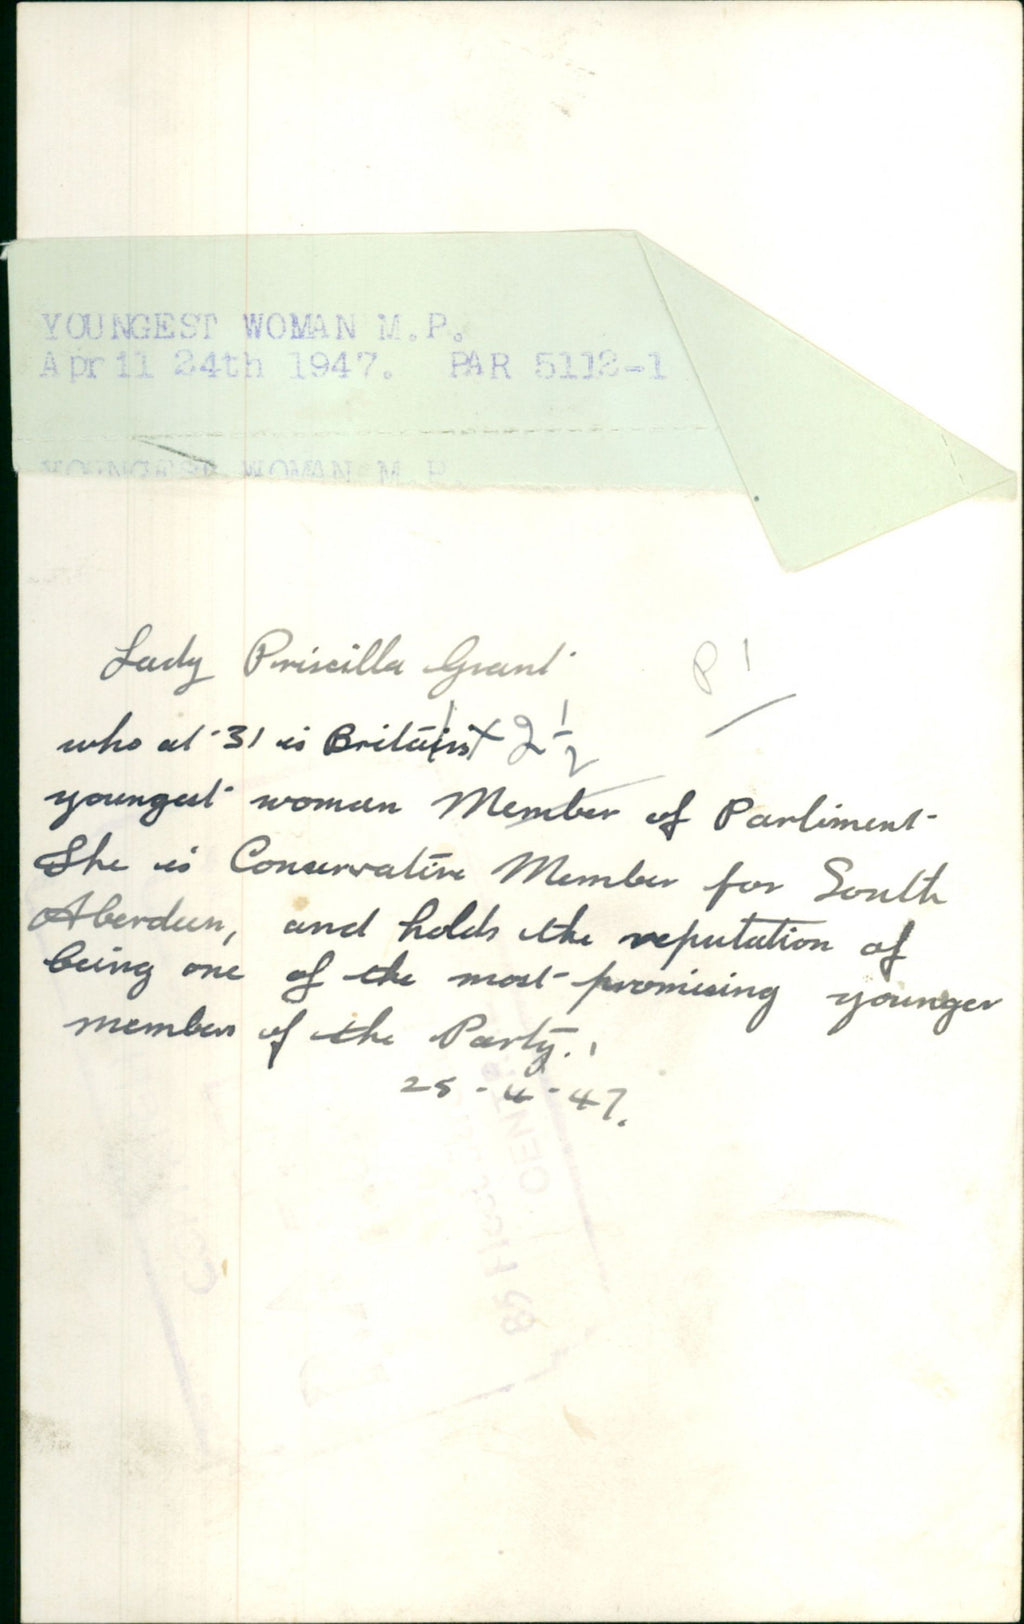 YOUNGEST WOMAN M.P.
April 24th 1947. PAR 5112-1
YOUNGEST WOMAN M.P.
Lady Priscilla Grant
P 1
who at 31 is Britain's
1 x 2 1/2
youngest woman Member of Parliment
She is Conservative Member for South
Aberdeen, and holds the reputation of
being one of the most promising younger
members of the Party.
25-4-47.